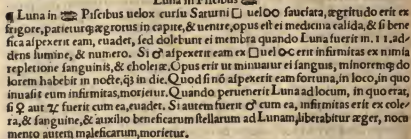 ¶ Luna in ♓ Piscibus uelox cursu Saturni □ uel ☍ sauciata, ægritudo erit ex
frigore, patieturq́; ægrotus in capite, & uentre, opus est ei medicina calida, & si bene
fica aspexerit eam, euadet, sed dolebunt ei membra quando Luna fuerit m. 11, ad-
dens lumine, & numero. Si ♂ aspexerit eam ex □ uel ☍ erit infirmitas ex nimia
repletione sanguinis, & choleræ, Opus erit ut minuatur ei sanguis, minoremq́; do
lorem habebit in nocte, q̃ in die. Quod si nõ aspexerit eam fortuna, in loco, in quo
inuasit eum infirmitas, morietur. Quando peruenerit Luna ad locum, in quo erat,
si ♀ aut ♃ fuerit cum ea, euadet. Si autem fuerit ♂ cum ea, infirmitas erit ex cole-
ra, & sanguine, & auxilio beneficarum stellarum ad Lunam, liberabitur æger, nocu
mento autem maleficarum, morietur.